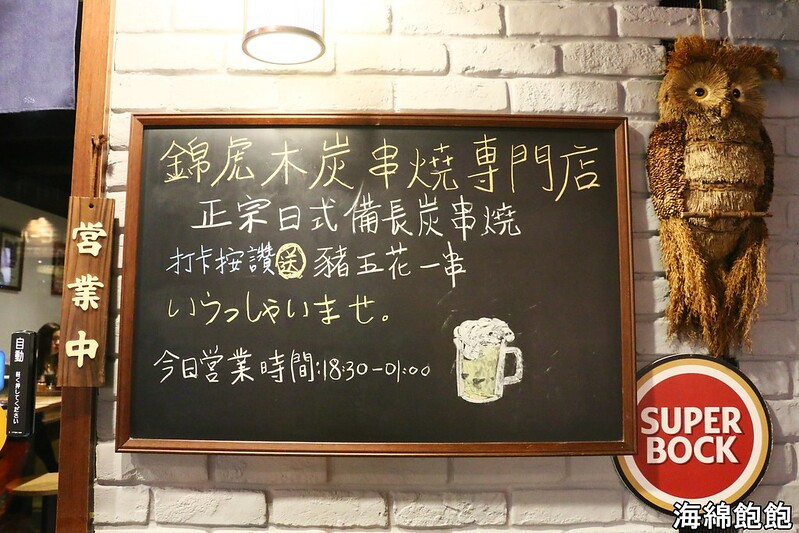 錦虎木炭串燒専門店
正宗日式備長炭串燒
打卡按讚送豬五花一串
いらっしゃいませ。
今日営業時間:18:30-01:00
営業中
自動
軽く押してください
SUPER
BOCK
海綿飽飽